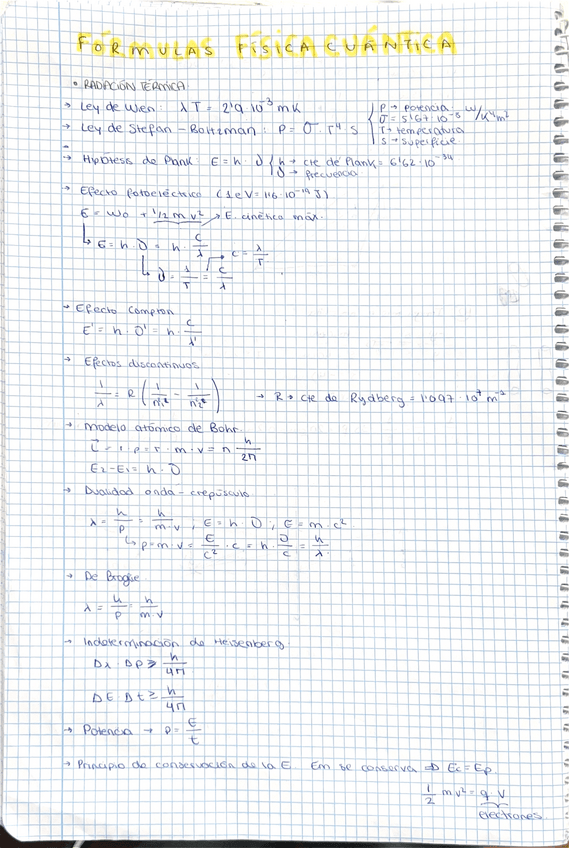 FÓRMULAS FÍSICA CUÁNTICA
• RADIACIÓN TÉRMICA
→ Ley de Wien: λT = 2'9·10⁻³ mK
→ Ley de Stefan-Boltzman: P = σ·T⁴·S { P → potencia
σ = 5'67·10⁻⁸ W/K⁴m²
T → temperatura
S → superficie
→ Hipótesis de Plank: E = h·ν { h → cte de Plank = 6'62·10⁻³⁴
ν → frecuencia
→ Efecto fotoeléctrico (1eV = 1'6·10⁻¹⁹ J)
E = W₀ + 1/2 m v² → E. cinética máx.
↳ E = h·ν = h·c/λ → c = λ/T
↳ ν = 1/T = c/λ
→ Efecto Compton
E' = h·ν' = h·c/λ'
→ Efectos discontinuos
1/λ = R (1/n₁² - 1/n₂²) → R → cte de Rydberg = 1'097·10⁷ m⁻¹
→ Modelo atómico de Bohr
L = r·p = r·m·v = n h/2π
E₂-E₁ = h·ν
→ Dualidad onda-crepúsculo
λ = h/p = h/m·v , E = h·ν , E = m·c²
↳ p = m·v = E/c²·c = h·ν/c = h/λ
→ De Broglie
λ = h/p = h/m·v
→ Indeterminación de Heisenberg
Δx·Δp ≥ h/4π
ΔE·Δt ≥ h/4π
→ Potencia → P = E/t
→ Principio de conservación de la E. Em se conserva ⇒ Ec = Ep
1/2 mv² = q·V
electrones